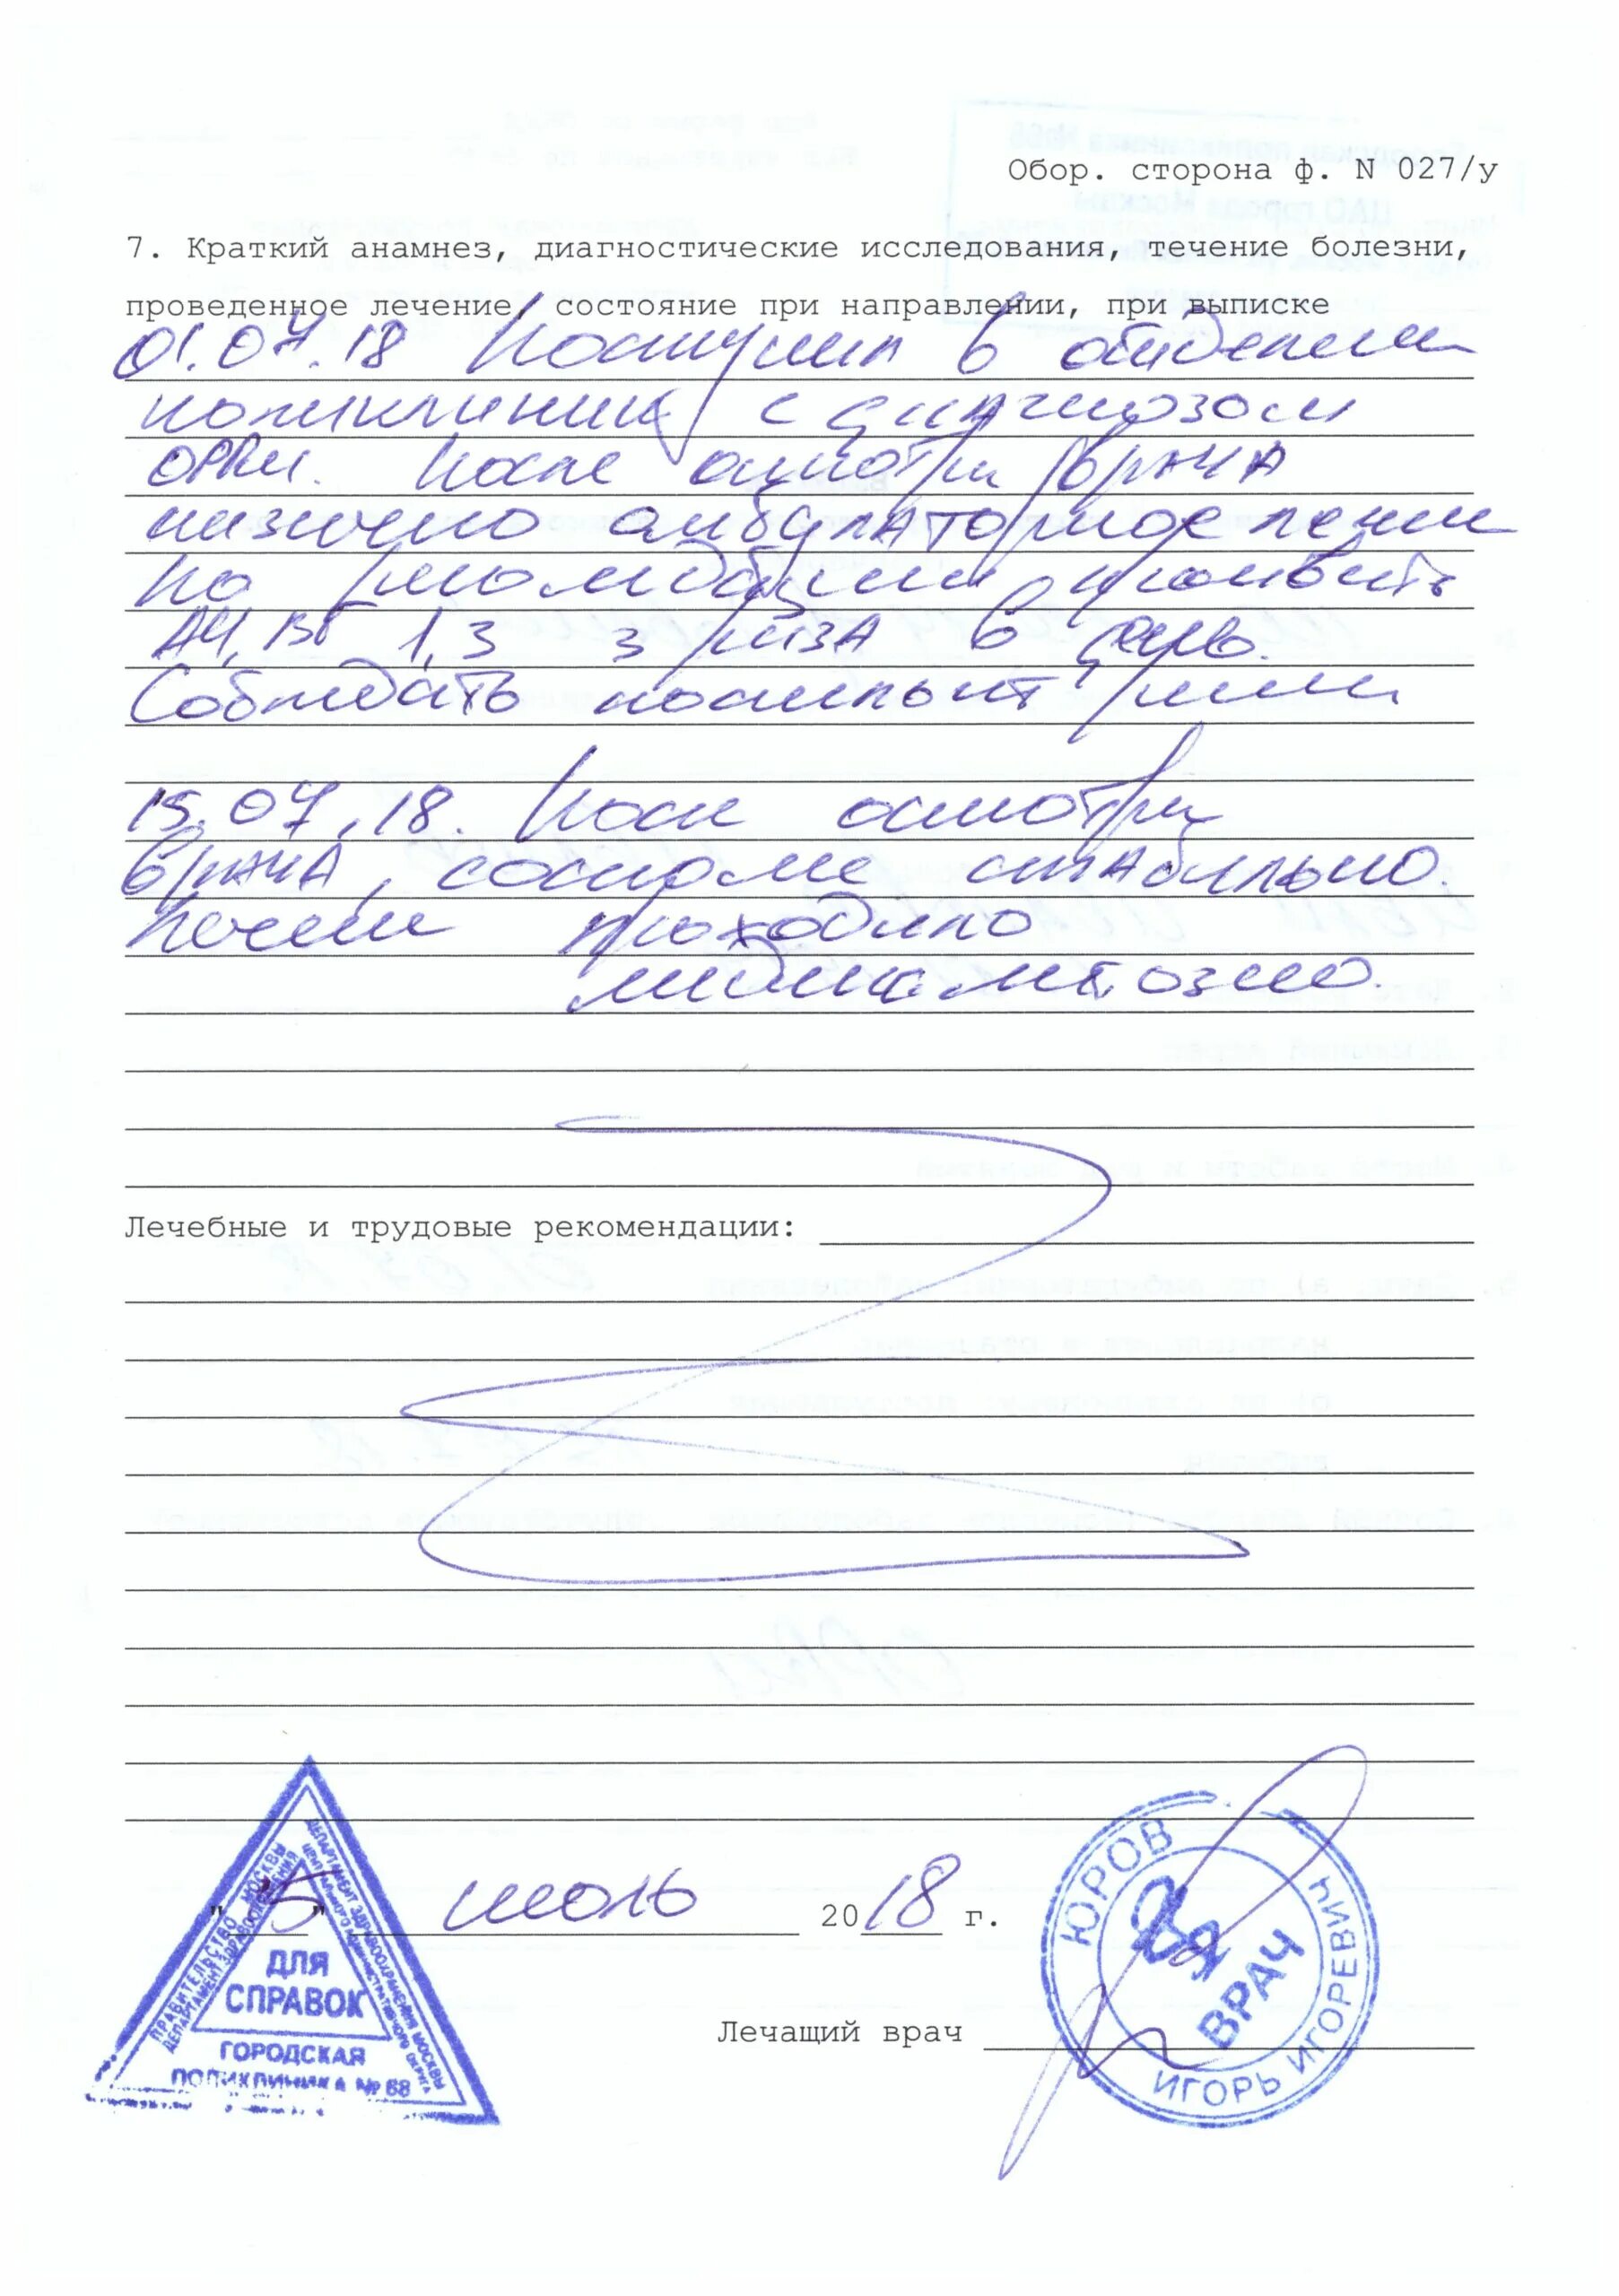 Обор. сторона ф. N 027/у
7. Краткий анамнез, диагностические исследования, течение болезни,
проведенное лечение, состояние при направлении, при выписке
01.07.18 Поступил в отделении
поликлиники с диагнозом
ОРВИ. После осмотра врача
назначено амбулаторное лечени
по
А4, В6 1,3 3 раза в день.
Соблюдать постельный режим
15.07.18. После осмотра
врача, состояние стабильно.
Лечение проходило
медикаментозно.
Лечебные и трудовые рекомендации:
"15" июль 2018 г.
Лечащий врач
ПРАВИТЕЛЬСТВО МОСКВЫ
ДЕПАРТАМЕНТ ЗДРАВООХРАНЕНИЯ
ДЕПАРТАМЕНТ ЗДРАВООХРАНЕНИЯ МОСКВЫ
ЦЕНТРАЛЬНОГО АДМИНИСТРАТИВНОГО ОКРУГА
ДЛЯ
СПРАВОК
ГОРОДСКАЯ
ПОЛИКЛИНИКА № 68
ЮРОВ
ИГОРЬ ИГОРЕВИЧ
ВРАЧ